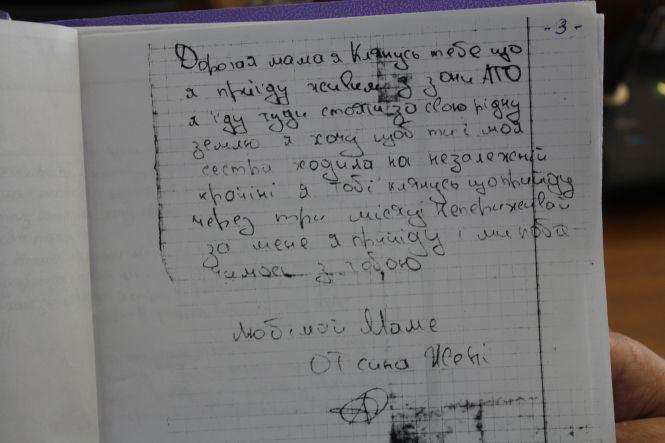 - 3 -
Дорогая мама я клянусь тебе що
я приїду живим з зони АТО
я їду туди стояти за свою рідну
землю я хочу щоб ти і моя
сестра ходила на незалежній
країні я тобі клянусь що приїду
через три місяці непереживай
за мене я приїду і ми поба-
чимось з тобою
Любімой Маме
От сина Жені